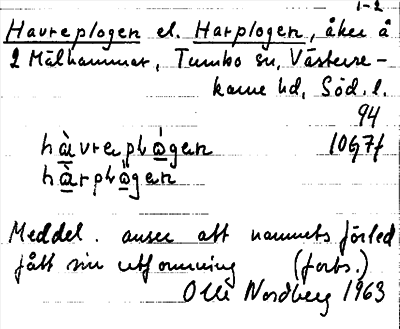 1-2
Havreplogen el. Harplogen, åker å
2 Mälhammar, Tumbo sn, Västerre-
karne hd, Söd. l.
94
10G7f
hàvrəpløgen
hàrpløgen
Meddel. anser att namnets förled
fått sin utformning (forts.)
Olle Nordberg 1963